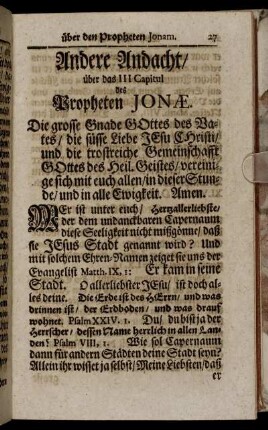 über den Propheten Jonam. 27
Andere Andacht/
über das III Capitul
des
Propheten JONÆ.
Die grosse Gnade GOttes des Va-
ters/ die süsse Liebe JEsu CHristi/
und die trostreiche Gemeinschafft
GOttes des Heil. Geistes/ vereini-
ge sich mit euch allen/ in dieser Stun-
de/ und in alle Ewigkeit. Amen.
WEr ist unter euch/ Hertzallerliebste/
der dem undanckbaren Capernaum
diese Seeligkeit nicht mißgönne/ daß
sie JEsus Stadt genannt wird? Und
mit solchem Ehren-Namen zeiget sie uns der
Evangelist Matth. IX. 1: Er kam in seine
Stadt. O allerliebster JEsu/ ist doch al-
les deine. Die Erde ist des HErrn/ und was
drinnen ist/ der Erdboden/ und was drauf
wohnet. Psalm XXIV. 1. Du/ du bist ja der
Herrscher/ dessen Name herrlich in allen Lan-
den! Psalm VIII. 1. Wie sol Capernaum
dann für andern Städten deine Stadt seyn?
Allein ihr wisset ja selbst/ Meine Liebsten/ daß
er